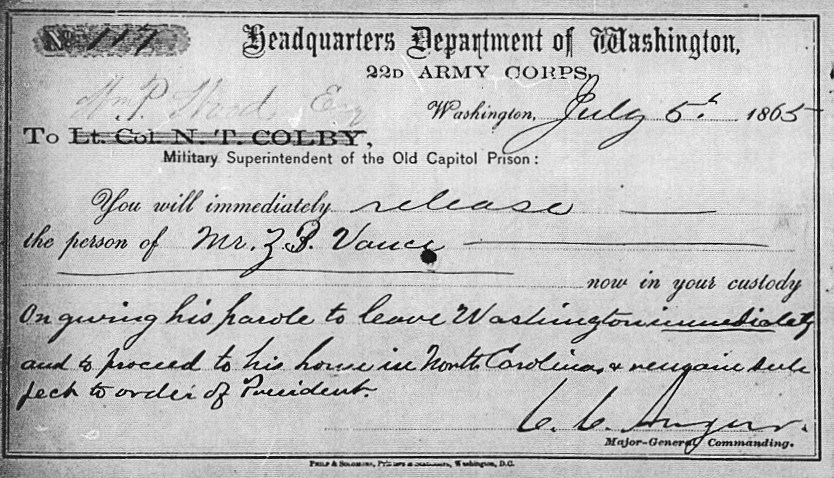 No 117
Headquarters Department of Washington,
22D ARMY CORPS,
Wm P. Wood, Esq
Washington, July 5th 1865
To Lt. Col. N. T. COLBY,
Military Superintendent of the Old Capitol Prison:
You will immediately release
the person of Mr. Z. B. Vance
now in your custody
On giving his parole to leave Washington immediately
and to proceed to his home in North Carolina, & remain sub
ject to order of President.
C. C. Augur.
Major-General Commanding.
Philp & Solomons, Printers & Stationers, Washington, D.C.